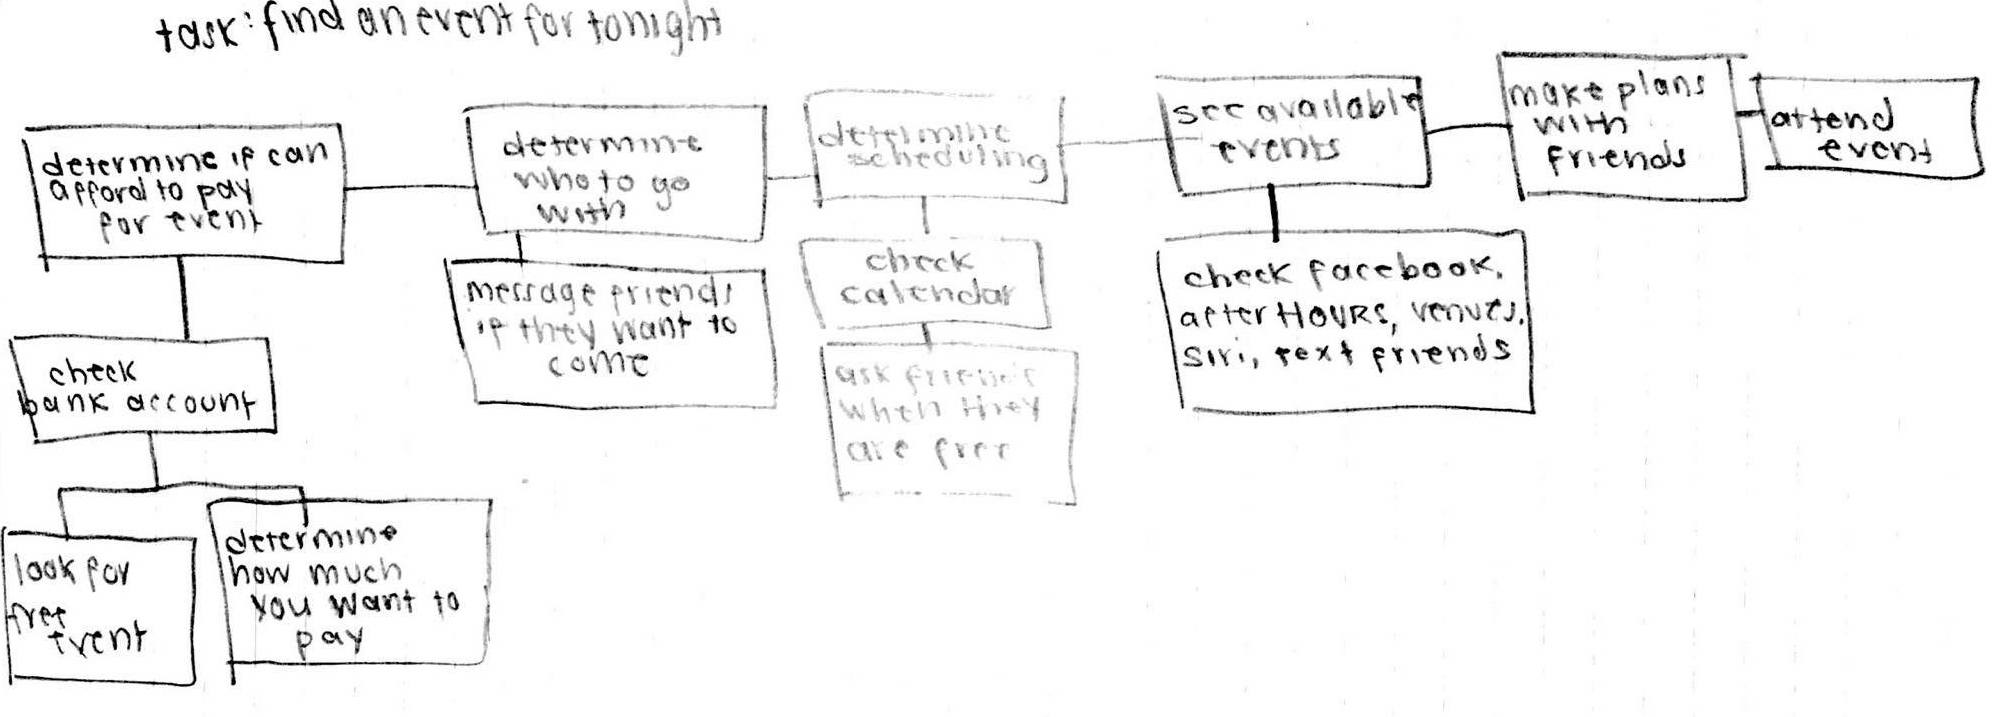 task: find an event for tonight
determine if can
afford to pay
for event
determine
who to go
with
determine
scheduling
see available
events
make plans
with
friends
attend
event
check
bank account
message friends
if they want to
come
check
calendar
ask friends
when they
are free
check facebook,
afterHOURS, venues,
siri, text friends
look for
free
event
determine
how much
you want to
pay